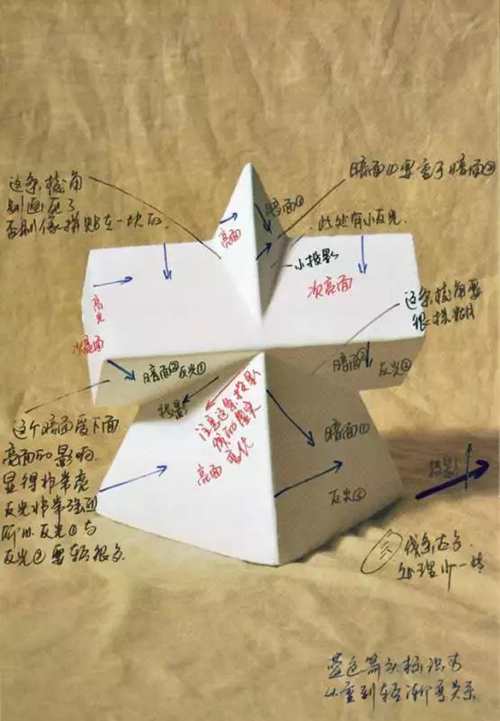 这条棱角
别画死了
否则像拼贴在一块的
暗面①要重于暗面②
此处有小反光.
亮面
暗面①
小投影
次亮面
这条棱角要
很模糊
高光
次亮面
暗面②反光①
暗面
反光②
投影
注意这条投影
线的虚实
变化
亮面
暗面①
反光②
这个暗面受下面
亮面的影响
显得非常亮
反光非常强烈
所以反光①与
反光②要轻很多.
投影
线条方向
处理小一块
蓝色箭头标识为
从重到轻渐变关系